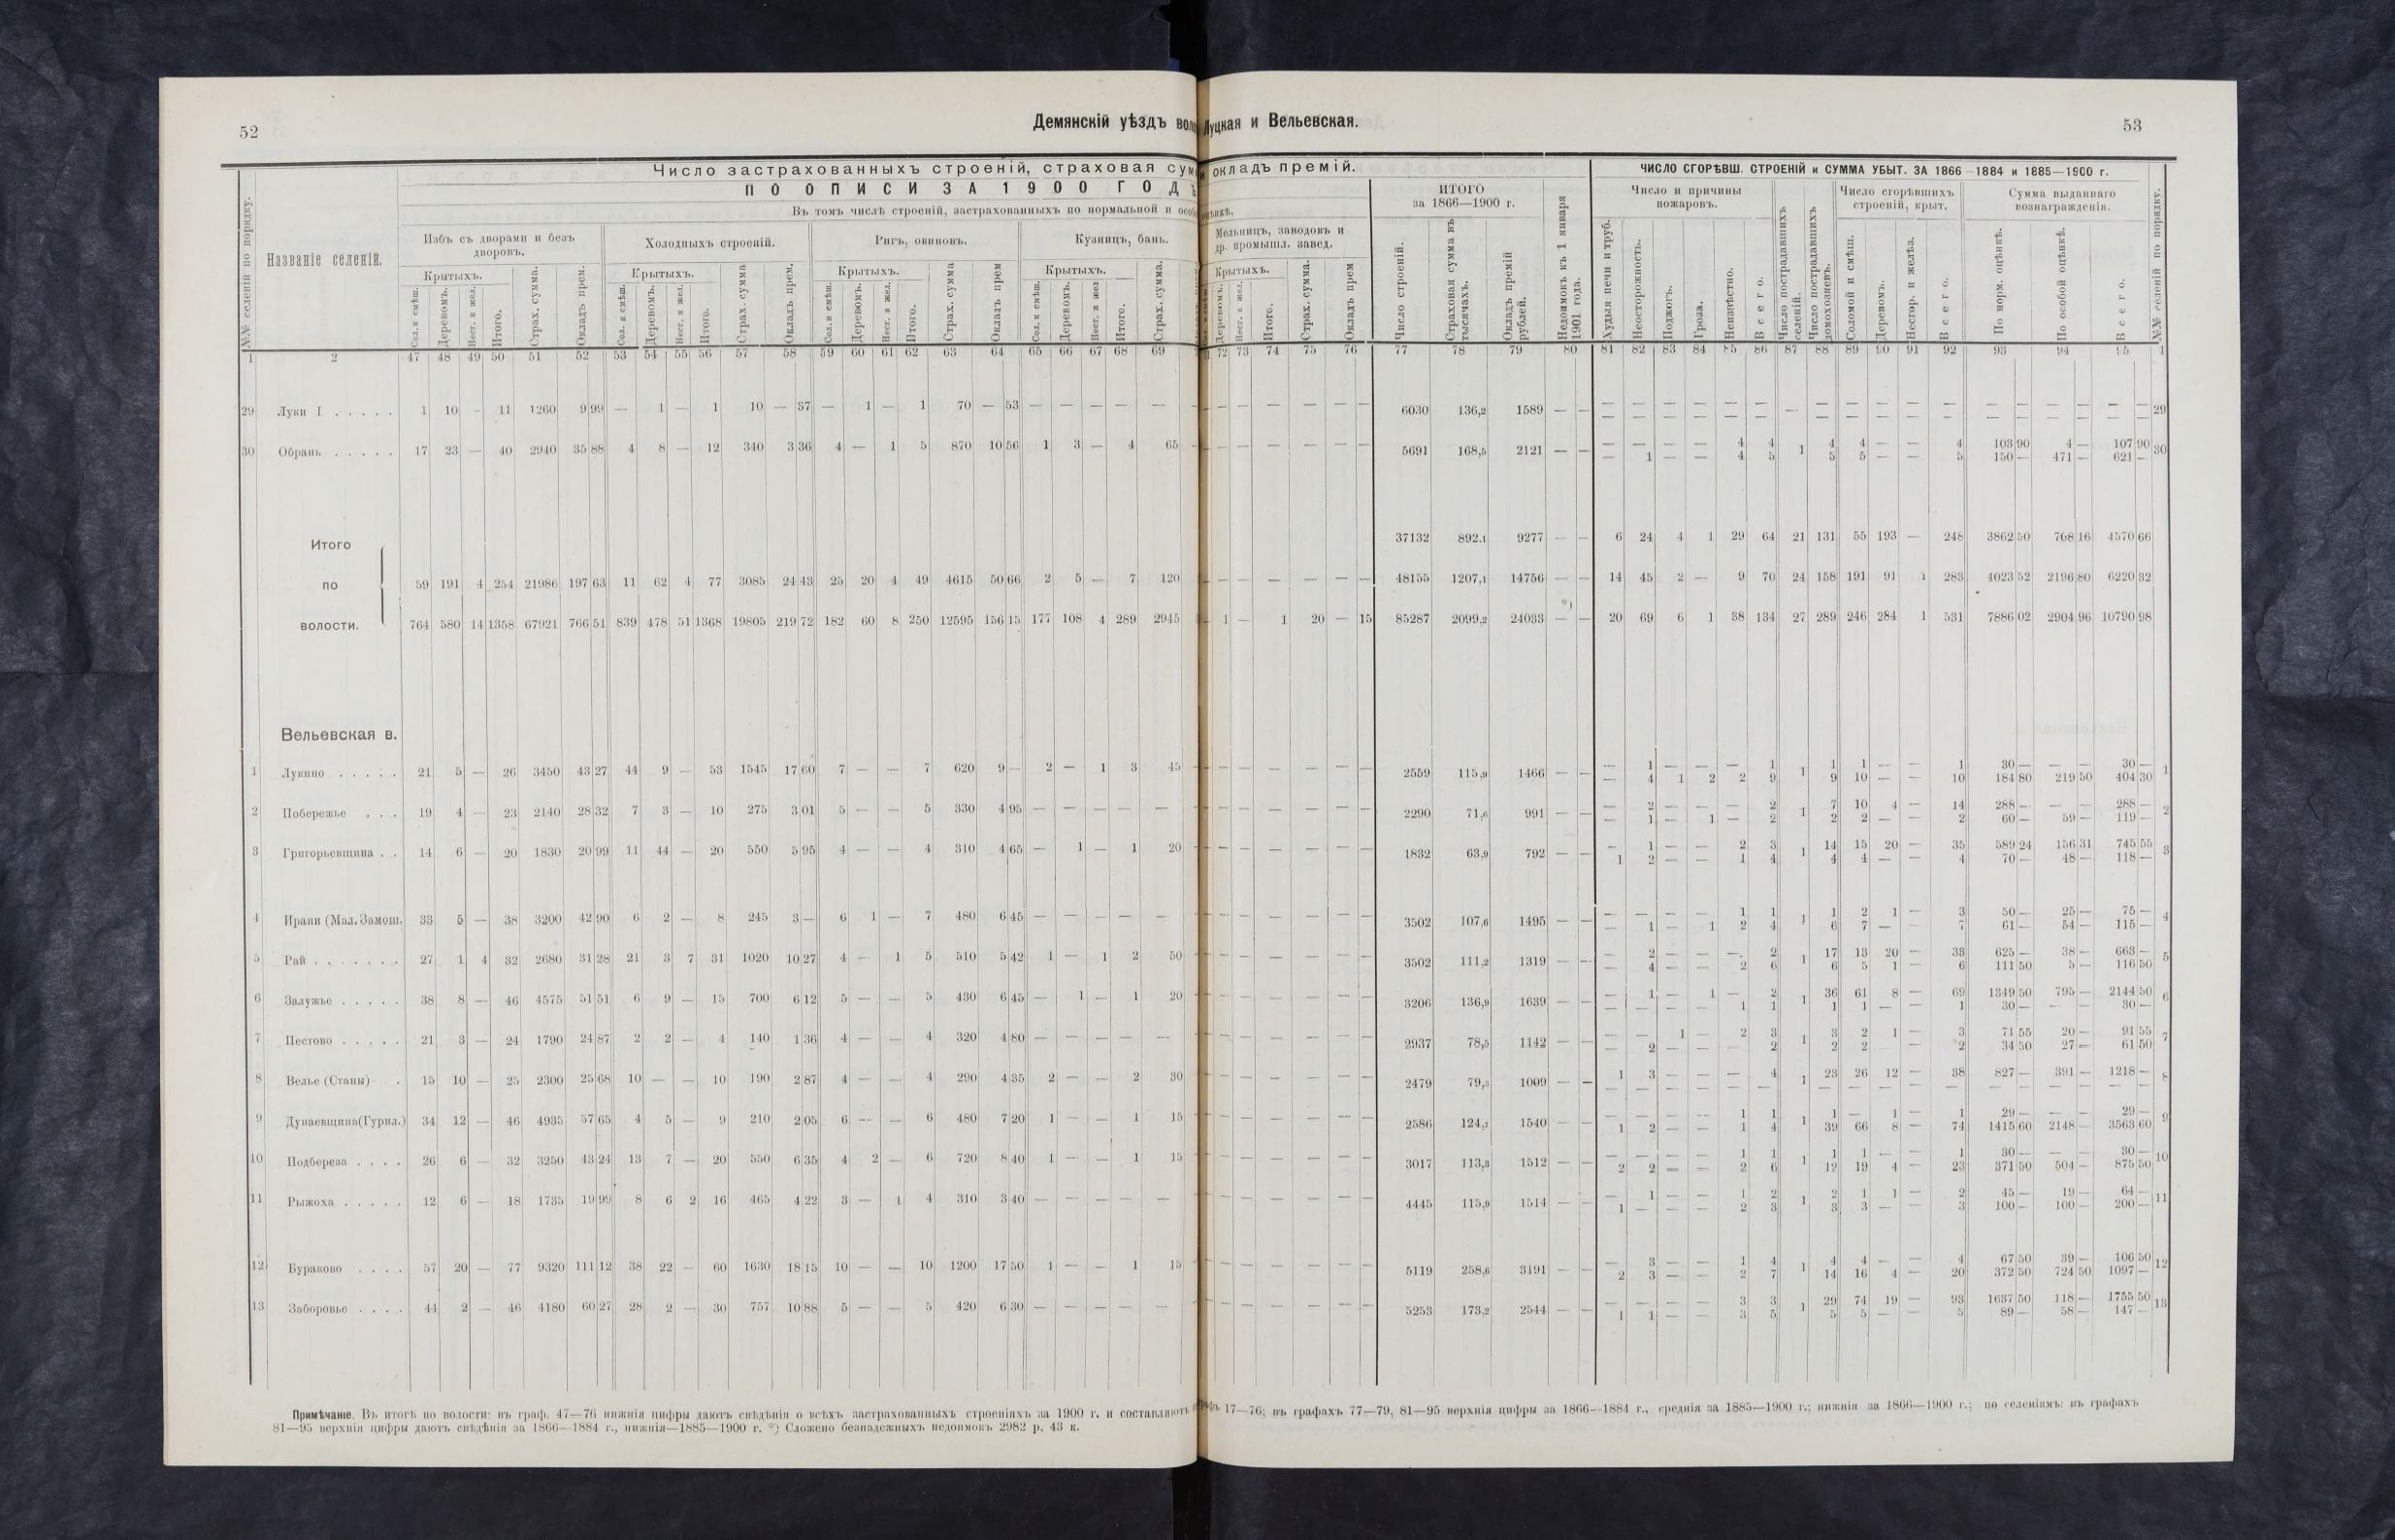 52
Демянскій уѣздъ воло
Луцкая и Вельевская.
53
Число застрахованныхъ строеній, страховая сум
и окладъ премій.
ЧИСЛО СГОРѢВШ. СТРОЕНІЙ и СУММА УБЫТ. ЗА 1866—1884 и 1885—1900 г.
ПО ОПИСИ ЗА 1900 ГОДЪ
Въ томъ числѣ строеній, застрахованныхъ по нормальной и особ
оцѣнкѣ.
№№ селеній по порядку.
Названіе селеній.
Избъ съ дворами и безъ дворовъ.
Холодныхъ строеній.
Ригъ, овиновъ.
Кузницъ, бань.
Мельницъ, заводовъ и др. промышл. завед.
ИТОГО за 1866—1900 г.
Недоимокъ къ 1 января 1901 года.
Число и причины пожаровъ.
Число пострадавшихъ селеній.
Число пострадавшихъ домохозяевъ.
Число сгорѣвшихъ строеній, крыт.
Сумма выданнаго вознагражденія.
№№ селеній по порядку.
Крытыхъ. Крытыхъ. Крытыхъ. Крытыхъ. Крытыхъ.
Сол. и смѣш. Деревомъ. Несг. и жел. Итого. Страх. сумма. Окладъ прем.
Сол. и смѣш. Деревомъ. Несг. и жел. Итого. Страх. сумма Окладъ прем.
Сол. и смѣш. Деревомъ. Несг. и жел. Итого. Страх. сумма Окладъ прем
Сол. и смѣш. Деревомъ. Несг. и жел Итого. Страх. сумма.
Деревомъ. Несг. и жел. Итого. Страх. сумма. Окладъ прем
Число строеній. Страховая сумма въ тысячахъ. Окладъ премій рублей.
Худыя печи и труб. Неосторожность. Поджогъ. Гроза. Неизвѣстно. Всего.
Соломой и смѣш. Деревомъ. Несгор. и желѣз. Всего.
По норм. оцѣнкѣ. По особой оцѣнкѣ. Всего.
1 2 47 48 49 50 51 52 53 54 55 56 57 58 59 60 61 62 63 64 65 66 67 68 69 72 73 74 75 76 77 78 79 80 81 82 83 84 85 86 87 88 89 90 91 92 93 94 95 1
29 Луки I . . . . . 1 10 - 11 1260 9 99 — 1 — 1 10 — 57 — 1 — 1 70 — 53 — — — — — — — — — — — 6030 136,2 1589 — — — — — — — — — — — — — — — — — 29
— — — — — — — — — — — — — —
30 Обрань . . . . . 17 23 — 40 2940 35 88 4 8 — 12 340 3 36 4 — 1 5 870 10 56 1 3 — 4 65 — — — — — — 5691 168,5 2121 — — — — — — 4 4 1 4 4 — — 4 103 90 4 — 107 90 30
— 1 — — 4 5 5 5 — — 5 150 — 471 — 621 —
Итого 37132 892,1 9277 — — 6 24 4 1 29 64 21 131 55 193 — 248 3862 50 708 16 4570 66
по 59 191 4 254 21986 197 63 11 62 4 77 3085 24 43 25 20 4 49 4615 50 66 2 5 — 7 120 — — — — — — 48155 1207,1 14756 — — 14 45 2 — 9 70 24 158 191 91 1 283 4023 52 2196 80 6220 32
волости. 764 580 14 1358 67921 766 51 839 478 51 1368 19805 219 72 182 60 8 250 12595 156 15 177 108 4 289 2945 1 — 1 20 — 15 85287 2099,2 24033 — — °) 20 69 6 1 38 134 27 289 246 284 1 531 7886 02 2904 96 10790 98
Вельевская в.
1 Лукино . . . . . 21 5 — 26 3450 43 27 44 9 — 53 1545 17 60 7 — — 7 620 9 — 2 — 1 3 45 — — — — — — 2559 115,9 1466 — — — 1 — — — 1 1 1 1 — — 1 30 — — — 30 — 1
— 4 1 2 2 9 9 10 — — 10 184 80 219 50 404 30
2 Побережье . . . 19 4 — 23 2140 28 32 7 3 — 10 275 3 01 5 — — 5 330 4 95 — — — — — — — — — — — 2290 71,6 991 — — — 2 — — — 2 1 7 10 4 — 14 288 — — — 288 — 2
— 1 — 1 — 2 2 2 — — 2 60 — 59 — 119 —
3 Григорьевщина . . 14 6 — 20 1830 20 99 11 44 — 20 550 5 95 4 — — 4 310 4 65 — 1 — 1 20 — — — — — — 1832 63,9 792 — — — 1 — — 2 3 1 14 15 20 — 35 589 24 156 31 745 55 3
1 2 — — 1 4 4 4 — — 4 70 — 48 — 118 —
4 Ирани (Мал. Замош. 33 5 — 38 3200 42 90 6 2 — 8 245 3 — 6 1 — 7 480 6 45 — — — — — — — — — — — 3502 107,6 1495 — — — — — — 1 1 1 1 2 1 — 3 50 — 25 — 75 — 4
— 1 — 1 2 4 6 7 — — 7 61 — 54 — 115 —
5 Рай . . . . . . . 27 1 4 32 2680 31 28 21 3 7 31 1020 10 27 4 — 1 5 510 5 42 1 — 1 2 50 — — — — — — 3502 111,2 1319 — — — 2 — — — 2 1 17 13 20 — 33 625 — 38 — 663 — 5
— 4 — — 2 6 6 5 1 — 6 111 50 5 — 116 50
6 Залужье . . . . . 38 8 — 46 4575 51 51 6 9 — 15 700 6 12 5 — — 5 430 6 45 — 1 — 1 20 — — — — — — 3206 136,9 1639 — — — 1 — 1 — 2 1 36 61 8 — 69 1349 50 795 — 2144 50 6
— — — — 1 1 1 1 — — 1 30 — — — 30 —
7 Пестово . . . . . 21 3 — 24 1790 24 87 2 2 — 4 140 1 36 4 — — 4 320 4 80 — — — — — — — — — — — 2937 78,5 1142 — — — — 1 — 2 3 1 3 2 1 — 3 71 55 20 — 91 55 7
— 2 — — — 2 2 2 — 2 34 50 27 — 61 50
8 Велье (Станы) . 15 10 — 25 2300 25 68 10 — — 10 190 2 87 4 — — 4 290 4 35 2 — — 2 30 — — — — — — 2479 79,3 1009 — — 1 3 — — — 4 1 23 26 12 — 38 827 — 391 — 1218 — 8
— — — — — — — — — — — — — —
9 Дунаевщина(Гурил.) 34 12 — 46 4935 57 65 4 5 — 9 210 2 05 6 — — 6 480 7 20 1 — — 1 15 — — — — — — 2586 124,2 1540 — — — — — — 1 1 1 1 — 1 — 1 29 — — — 29 — 9
1 2 — — 1 4 39 66 8 — 74 1415 60 2148 — 3563 60
10 Подбереза . . . . 26 6 — 32 3250 43 24 13 7 — 20 550 6 35 4 2 — 6 720 8 40 1 — — 1 15 — — — — — — 3017 113,3 1512 — — — — — — 1 1 1 1 1 — — 1 30 — — — 30 — 10
2 2 — — 2 6 12 19 4 — 23 371 50 504 — 875 50
11 Рыжоха . . . . . 12 6 — 18 1735 19 99 8 6 2 16 465 4 22 3 — 1 4 310 3 40 — — — — — — — — — — — 4445 115,9 1514 — — — 1 — — 1 2 1 2 1 1 — 2 45 — 19 — 64 — 11
1 — — — 2 3 3 3 — — 3 100 — 100 — 200 —
12 Бураково . . . . 57 20 — 77 9320 111 12 38 22 — 60 1630 18 15 10 — — 10 1200 17 50 1 — — 1 15 — — — — — — 5119 258,6 3191 — — — 3 — — 1 4 1 4 4 — — 4 67 50 39 — 106 50 12
2 3 — — 2 7 14 16 4 — 20 372 50 724 50 1097 —
13 Заборовье . . . . 44 2 — 46 4180 60 27 28 2 — 30 757 10 88 5 — — 5 420 6 30 — — — — — — — — — — — 5253 173,2 2544 — — — — — — 3 3 1 29 74 19 — 93 1637 50 118 — 1755 50 13
1 1 — — 3 5 5 5 — — 5 89 — 58 — 147 —
Примѣчаніе. Въ итогѣ по волости: въ граф. 47—76 нижнія цифры даютъ свѣдѣнія о всѣхъ застрахованныхъ строеніяхъ за 1900 г. и составляютъ
17—76; въ графахъ 77—79, 81—95 верхнія цифры за 1866—1884 г., среднія за 1885—1900 г.; нижнія за 1866—1900 г.; по селеніямъ: въ графахъ
81—95 верхнія цифры даютъ свѣдѣнія за 1866—1884 г., нижнія—1885—1900 г. °) Сложено безнадежныхъ недоимокъ 2982 р. 43 к.